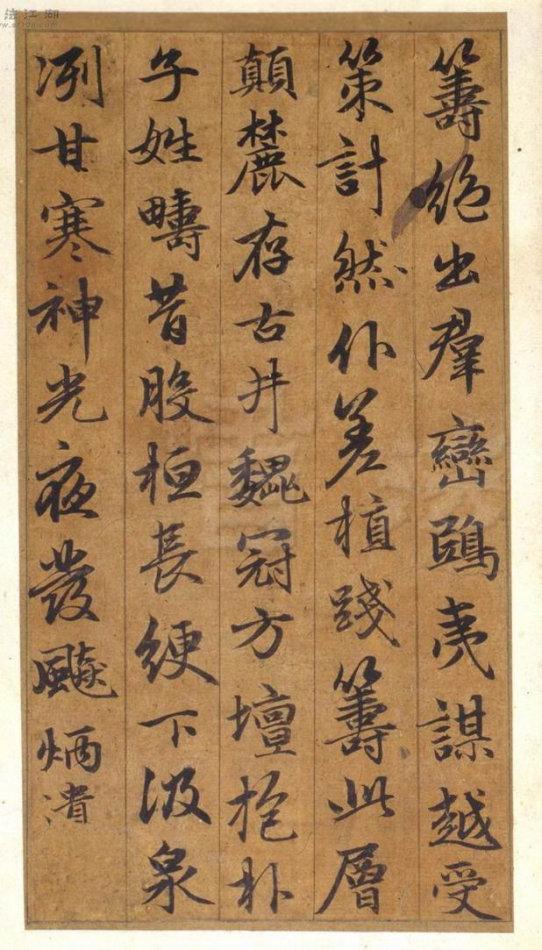 籌絕出羣巒鴟夷謀越受
策計然仆差植踐籌此層
顛麓存古井魏冠方壇抱朴
子姓疇昔般桓長綆下汲泉
冽甘寒神光夜發飈炳潰
法江湖